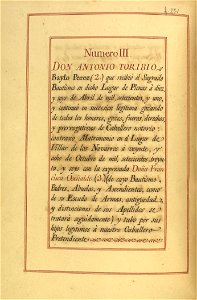 Numero III
DON ANTONIO TORIBIO, d
Royto Perez (2.) que recibió el Sagrado
Bautismo en dicho Lugar de Plenas á diez
y seys de Abril de mil, setecientos, y uno,
y continuó su succesion legitima gozando
de todos los honores, gozes, fueros, derechos,
y prerrogativas de Cavallero notorio:
contraxo Matrimonio en el Lugar de
Villar de los Navarros á veynte, y
ocho de Octubre de mil, setecientos, treynta
y seys con la expresada Doña Fran-
cisca (3.) de cuyo Bautismo,
Padres, Abuelos, y Ascendientes, como
de su Escudo de Armas, antiguedad,
y distinciones de sus Apellidos se
tratará seguidamente; y tubo por sus
hijos legitimos á nuestro Cavallero
Pretendiente